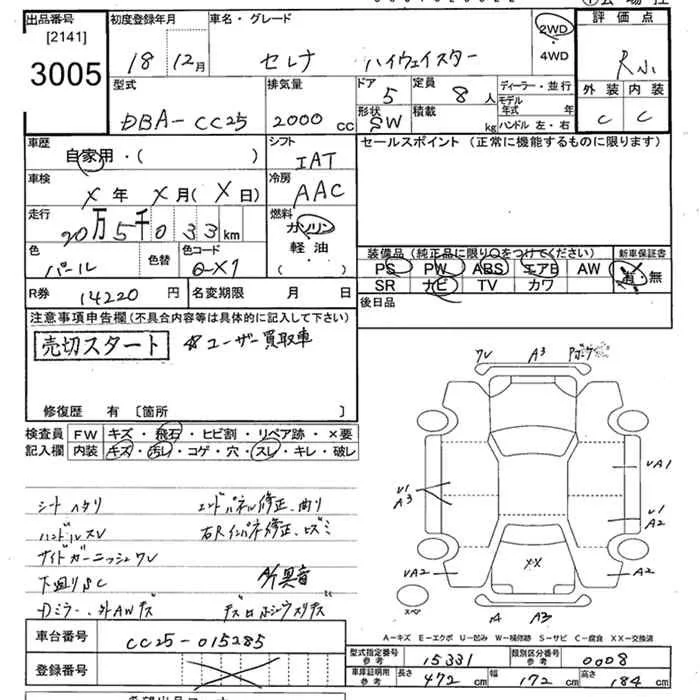 出品番号
[2141]
3005
初度登録年月
18 12月
車名・グレード
セレナ ハイウェイスター
2WD
・
4WD
評価点
R小
外装 内装
C C
型式
DBA-CC25
排気量
2000 CC
ドア
5
形状
SW
定員
8 人
積載
kg
ディーラー・並行
モデル年式 年
ハンドル 左・右
車歴
自家用・( )
シフト
IAT
車検
X年 X月(X日)
冷房
AAC
走行
20万5千033km
燃料
ガソリン
軽油
( )
色
パール
色替
色コード
QX1
セールスポイント (正常に機能するものに限ります)
装備品 (純正品に限り○をつけてください)
PS PW ABS エアB AW
SR ナビ TV カワ
新車保証書
有 無
後日品
R券 14220 円
名変期限 月 日
注意事項申告欄(不具合内容等は具体的に記入して下さい)
売切スタート
ユーザー買取車
修復歴 有 [箇所 ]
検査員記入欄
FW キズ・飛石・ヒビ割・リペア跡・×要
内装 キズ・汚レ・コゲ・穴・スレ・キレ・破レ
シートヘタリ エンドパネル修正、曲リ
ハンドルスレ 右Rインパネ修正、ヒズミ
サイドガーニッシュワレ
下廻りSC 異音
Dミラー、外AWキズ
ワレ A3
VA1
U1
A3
U1
A2
VA2
XX
A2
スペア
A3
A-キズ E-エクボ U-凹み W-補修跡 S-サビ C-腐食 XX-交換済
車台番号 CC25-015285
登録番号
型式指定番号 参考 15331
類別区分番号 参考 0008
車庫証明用 参考
長さ 472 cm
幅 172 cm
高さ 184 cm